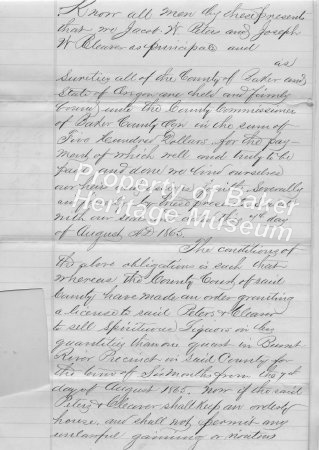 Know all men by these presents
that we Jacob W Peters and Joseph
W Cleaver as principals and
as
sureties all of the County of Baker and
State of Oregon are held and firmly
bound unto the County Commissioners
of Baker County Ogn in the sum of
Five Hundred Dollars for the pay-
ment of which well and truly to be
paid and done we bind ourselves
our heirs severally
by these presents
with our seals this 7th day
of August AD 1865
The conditions of
the above obligations is such that
whereas the County Court of said
County have made an order granting
a license to said Peters & Cleaver
to sell Spirituous Liquors in less
quantities than one quart in Burnt
River Precinct in said County for
the term of Six months from the 7th
day of August 1865. Now if the said
Peters & Cleaver shall keep an orderly
house, and shall not permit any
unlawful gaming or riotous
Property of Baker
Heritage Museum